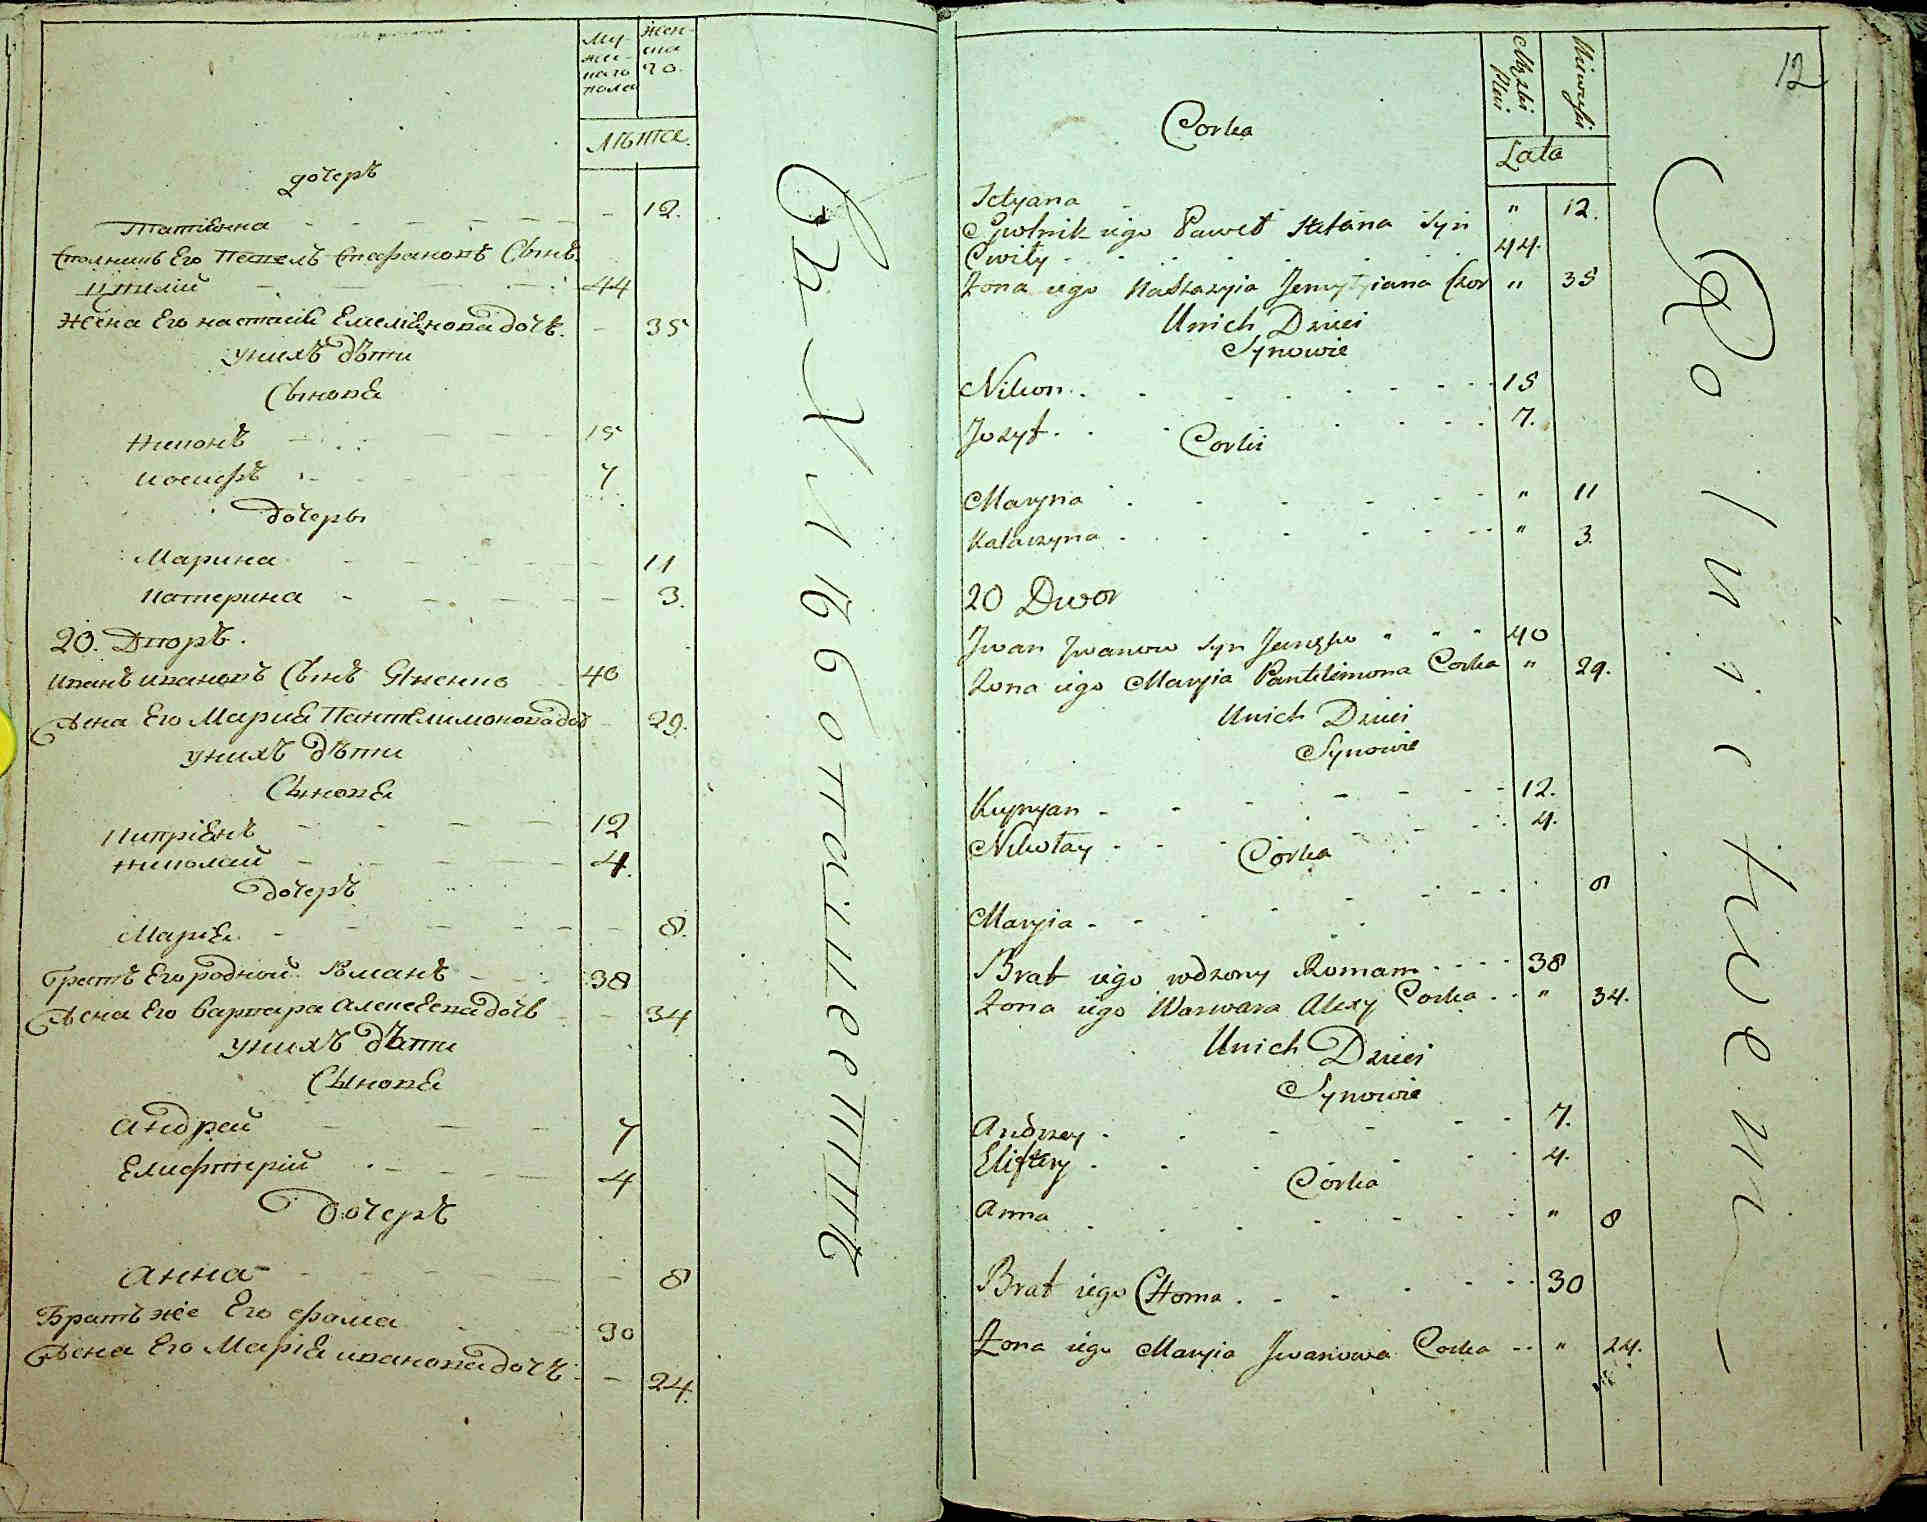 Му-
жес-
каго
пола
Жен-
ска
го.
Лѣта.
дочеръ
Татіяна 12.
Сполникъ Его Павелъ Стефановъ Сынъ
44
Жена Его настасія Емеліянова дочь. 35
унихъ дѣти
Сыновя
Никонъ 15
иосифъ 7
дочеры
Марина 11
Катерина 3.
20. Дворъ.
Иванъ ивановъ Сынъ 40
Жена Его Марія Пантелимонова доч 29.
унихъ дѣти
Сыновя
Кипріянъ 12
николай 4.
дочеръ
Марія 8.
братъ Его родной Романъ 38
Жена Его варвара алексѣева дочь 34
унихъ дѣти
Сыновя
андрей 7
Елифтерій 4
дочеръ
анна 8
Братъ же Его фома 30
Жена Его Марія иванова дочь 24.
Въ Хлѣбопашествѣ
12
Męzki
Płci
Lata
Corka
Tetyana " 12.
Spolnik iego Paweł Stefana Syn
Cwiły 44.
Zona iego Nastazyia Jemyliiana Cor " 35
Unich Dzieci
Synowie
Nikon 15
Jozyf 7.
Corki
Maryna " 11
Katarzyna " 3.
20 Dwor
Jwan Jwanow Syn " " " 40
Zona iego Maryia Pantelimona Corka " 29.
Unich Dzieci
Synowie
Kupryan 12.
Nikołay 4.
Corka
Maryia 8
Brat iego rodzony Roman 38
Zona iego Warwara Alexy Corka " 34.
Unich Dzieci
Synowie
Andrzey 7.
Eliftery 4.
Corka
Anna " 8
Brat iego Choma 30
Zona iego Maryia Jwanowa Corka " 24.
Rolnictwem